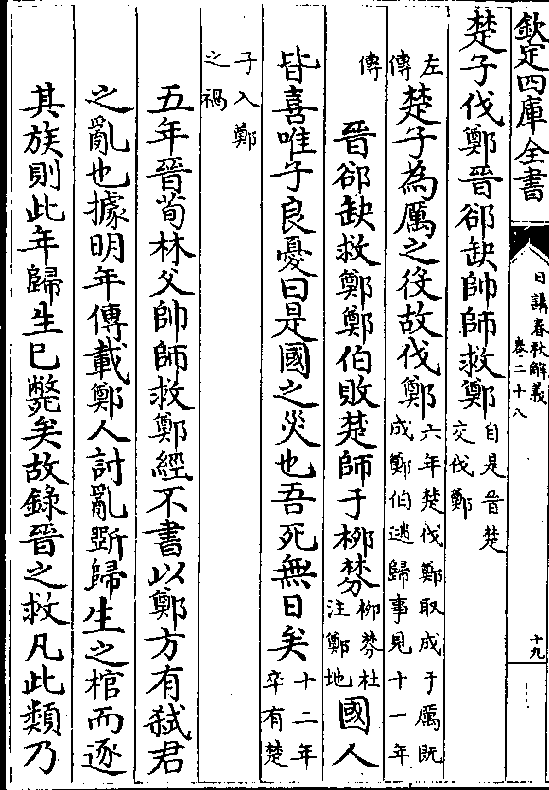 欽定四庫全書
日講春秋解義
卷二十八
十九
楚子伐鄭晉郤缺帥師救鄭自是晉楚交伐鄭
左傳楚子為厲之役故伐鄭六年楚伐鄭取成于厲既成鄭伯逃歸事見十一年傳
晉郤缺救鄭鄭伯敗楚師于栁棼栁棼杜注鄭地國人
皆喜唯子良憂曰是國之災也吾死無日矣十二年卒有楚
子入鄭之禍
五年晉荀林父帥師救鄭經不書以鄭方有弑君
之亂也據明年傳載鄭人討亂斲歸生之棺而逐
其族則此年歸生已斃矣故錄晉之救凡此類乃